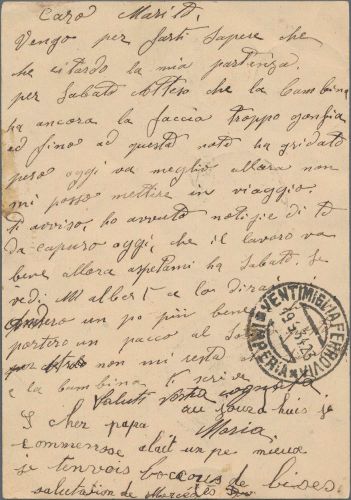 Caro Marito,
Vengo per farti Sapere che
che ritardo la mia partenza.
per Sabato Atteso che la bambina
ha ancora la faccia troppo gonfia
ed fino ad questa notte ha gridato
pero oggi va meglio allora non
mi posso mettire in viaggio.
ti avviso, ho avuto notizie di te
da capuro oggi, che il lavoro va
bene allora aspetami ha Sabato. Se
vedi Mr Albert a los dirai
un po più bene
portero un pacco al
non mi resta
e la bambina ti scrive
Saluti tosta
au jourd huis je
I cher papa Maria
commense alait un pe mieux
je tenvois boccous de bises.
salutasion de Mercedes
VENTIMIGLIA FERROVIA